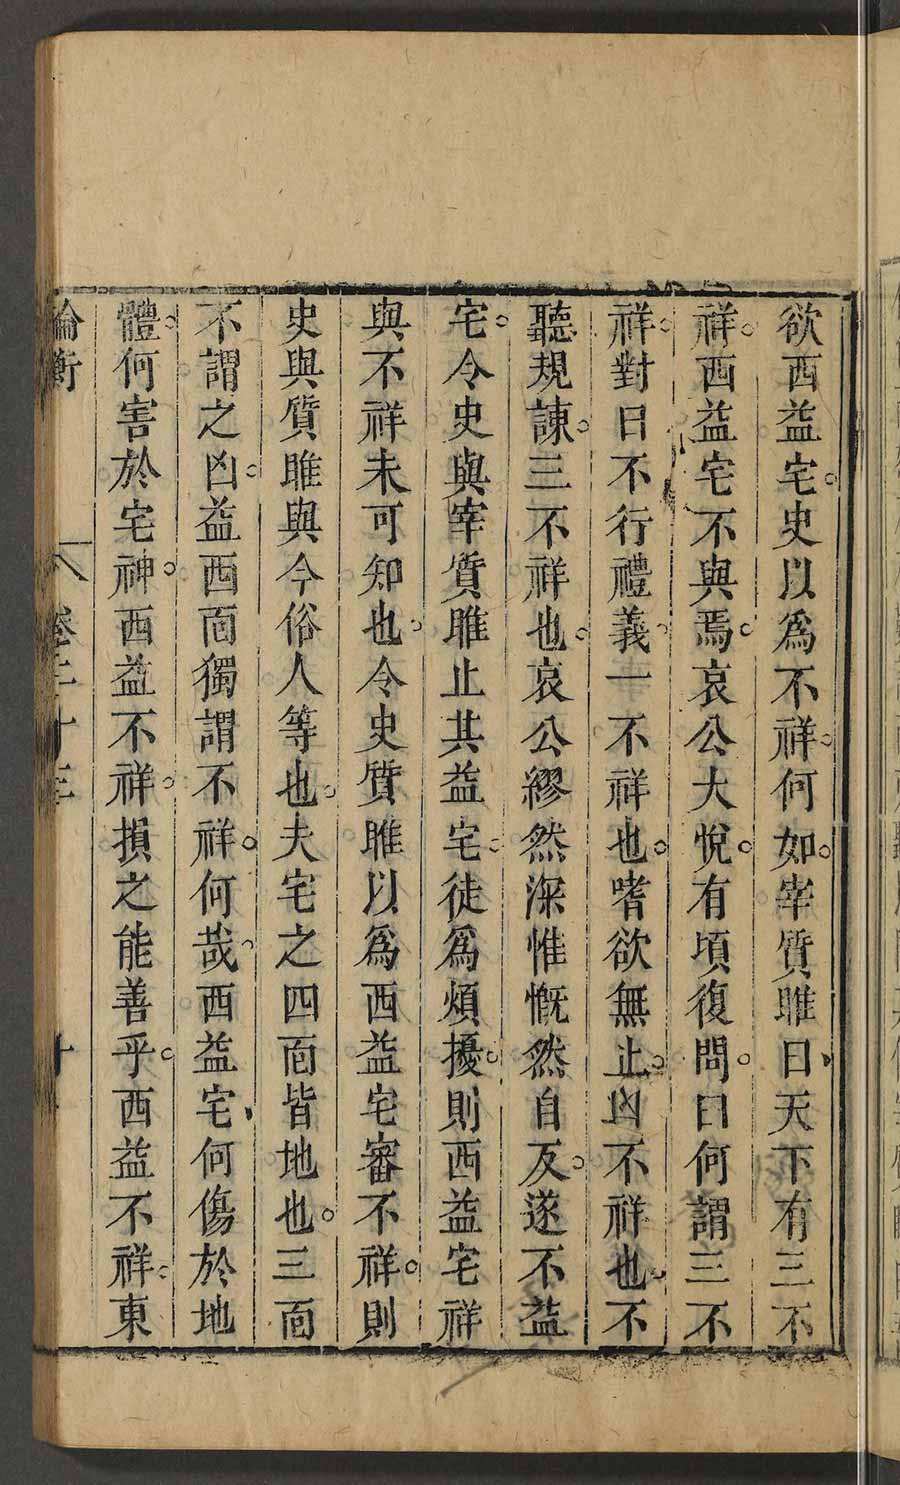 欲西益宅史以爲不祥何如宰質睢曰天下有三不
祥西益宅不與焉哀公大悅有頃復問曰何謂三不
祥對曰不行禮義一不祥也嗜欲無止凶不祥也不
聽規諫三不祥也哀公繆然深惟慨然自反遂不益
宅令史與宰質睢止其益宅徒爲煩擾則西益宅祥
與不祥未可知也令史質睢以爲西益宅審不祥則
史與質睢與今俗人等也夫宅之四面皆地也三面
不謂之凶益西面獨謂不祥何哉西益宅何傷於地
體何害於宅神西益不祥損之能善乎西益不祥東
論衡 卷二十三 十